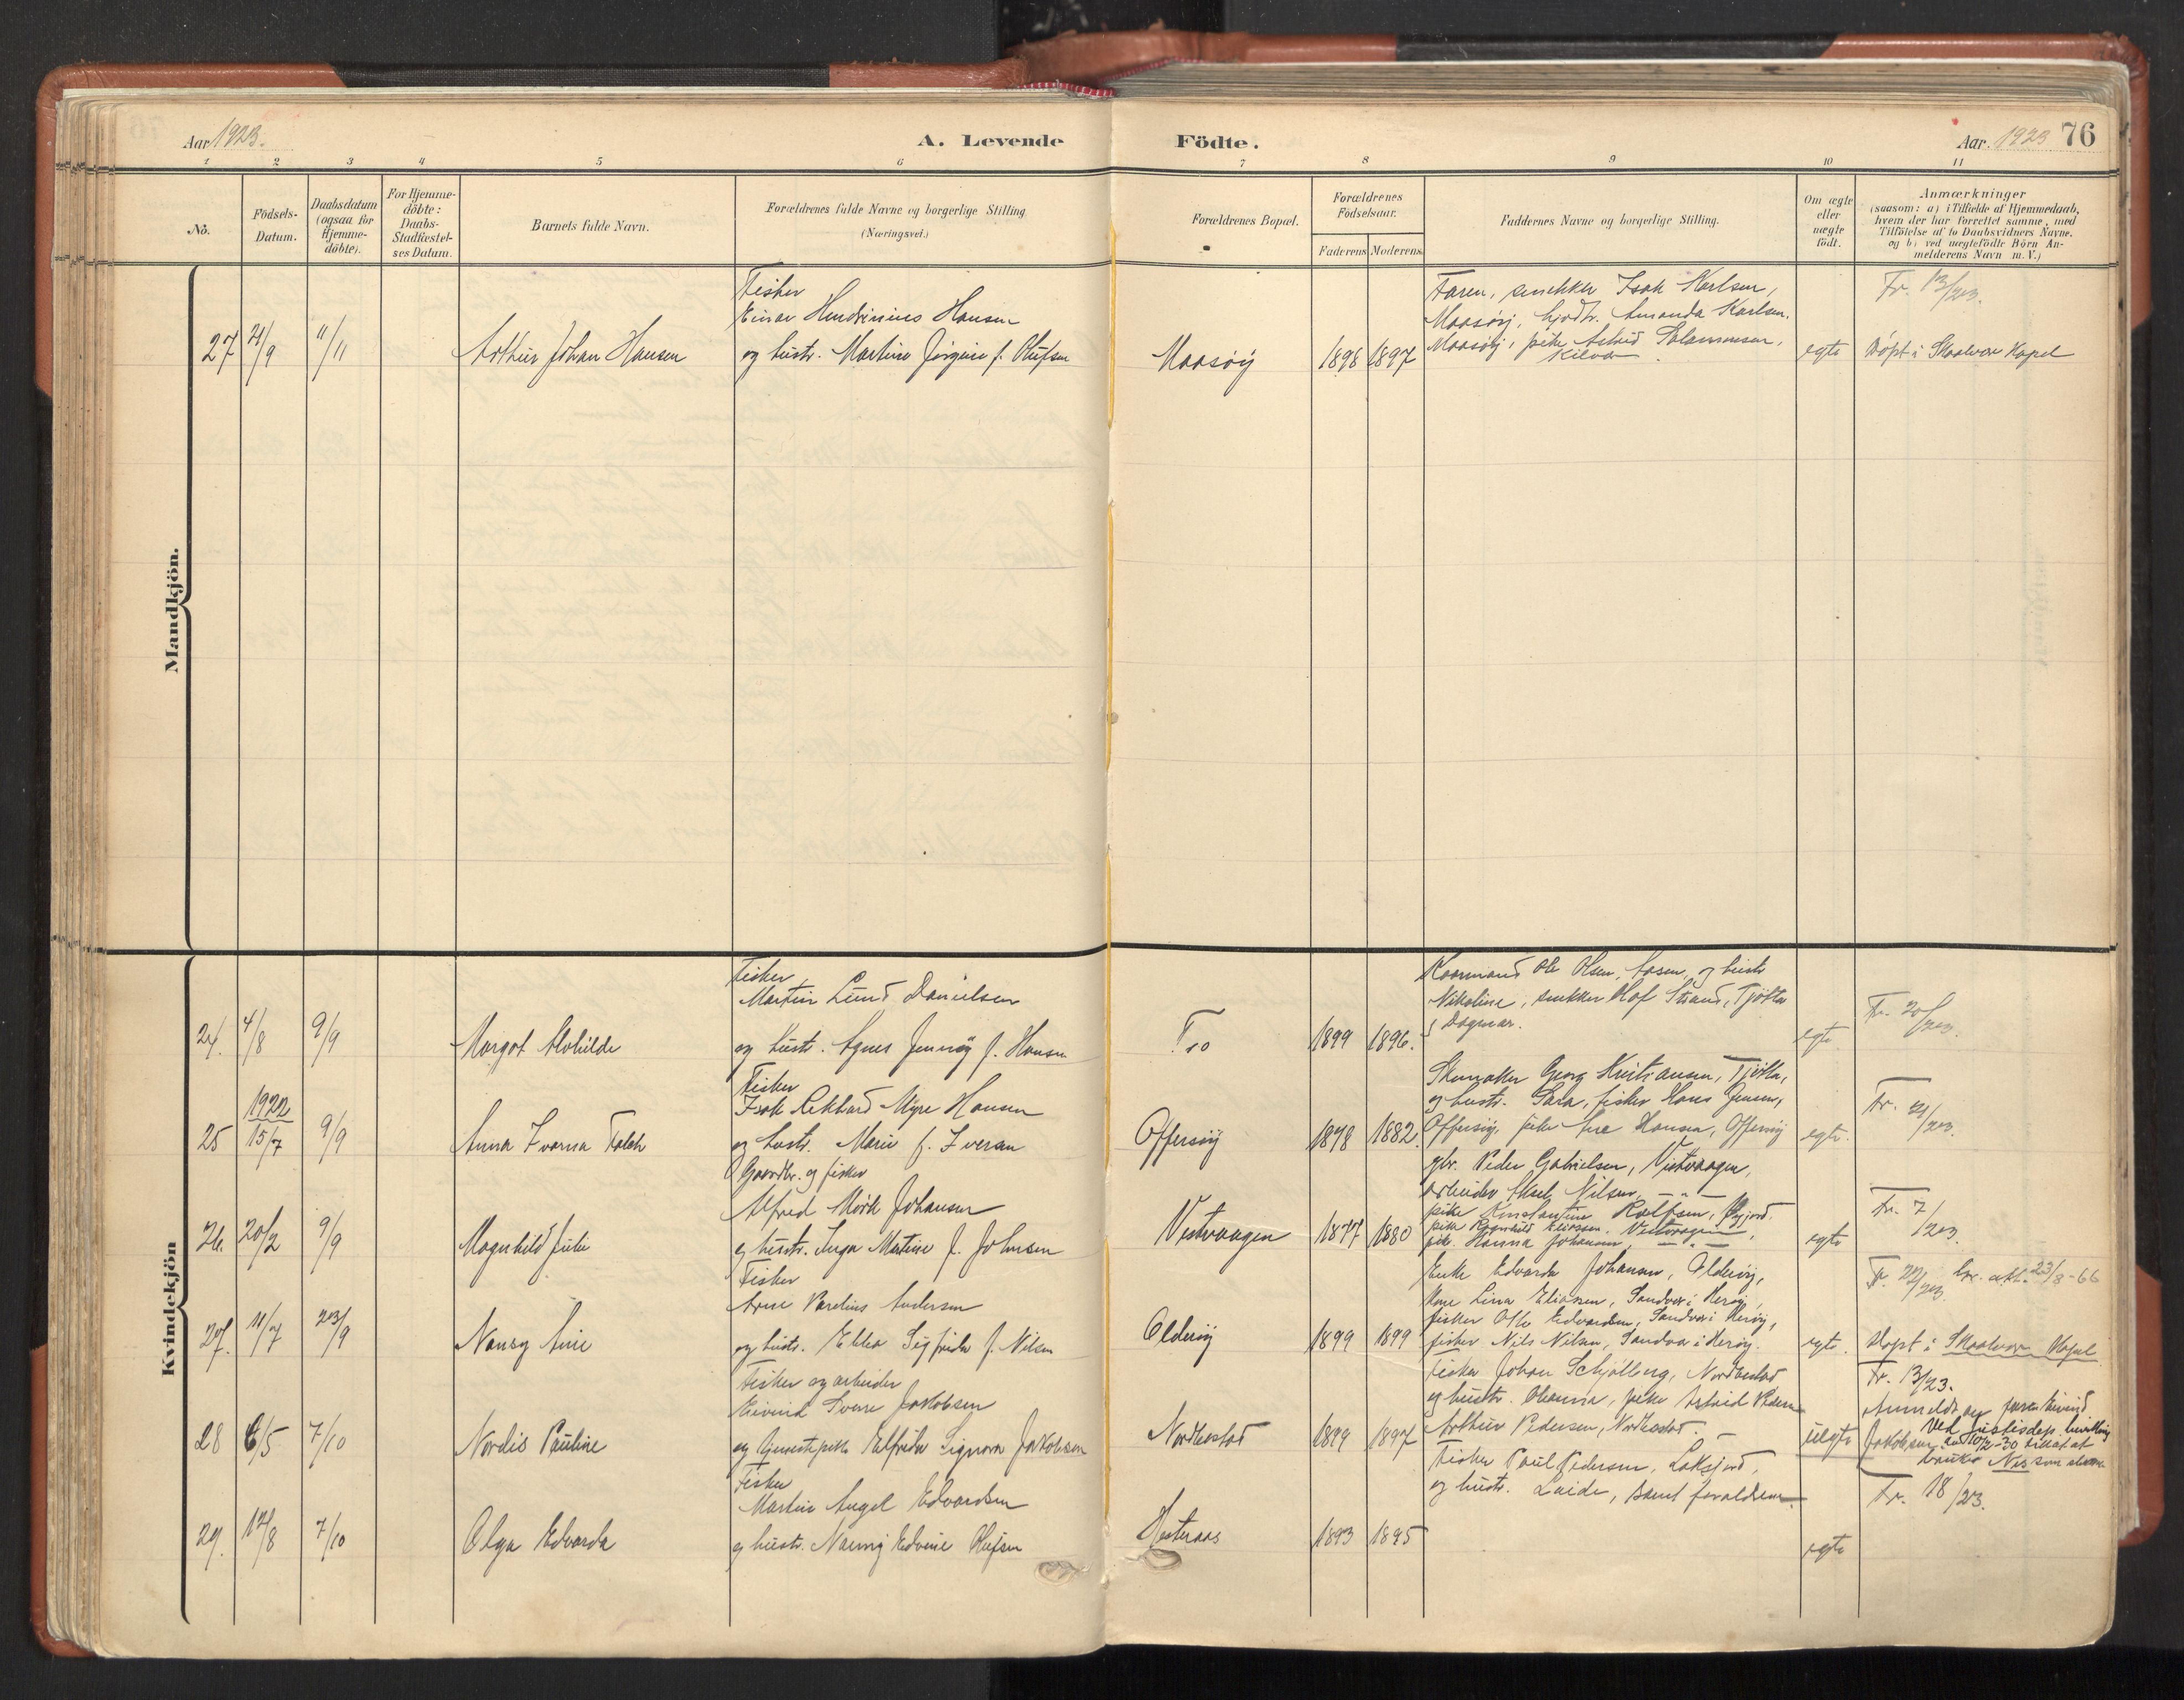 Aar 1923.
A. Levende Födte.
Aar. 1923 76
1 2 3 4 5 6 7 8 9 10 11
No.
Födsels-Datum.
Daabsdatum (ogsaa for Hjemme-döbte).
For Hjemme-döbte: Daabs-Stadfæstel-ses Datum.
Barnets fulde Navn.
Forældrenes fulde Navne og borgerlige Stilling. (Næringsvei.)
Forældrenes Bopæl.
Forældrenes Födselsaar.
Faderens Moderens
Faddernes Navne og borgerlige Stilling.
Om ægte eller uægte födt.
Anmærkninger
(saasom: a) i Tilfælde af Hjemmedaab,
hvem der har forrettet samme, med
Tilföielse af to Daabsvidners Navne.
og b) ved uægtefödte Börn An-
melderens Navn m. V.)
Mandkjön.
27 21/9 11/11
Arthur Johan Hansen
Fisker
Einar Hendrinius Hansen
og hustr. Martine Jörgine f. Olufsen
Maasöy 1898 1897
Faren, snekker Isak Karlsen,
Maasöy, Amanda Karlsen.
Maasöy, pike Astrid
Kilvær
egte
Fr. 13/23.
Döpt i Skaalvær Kapel
Kvindekjön
24. 4/8 9/9
Margot Alvhilde
Fisker
Martin Lund Danielsen
og hustr. Agnes Jenny f. Hansen
Tro 1899 1896.
Kaarmand Ole Olsen, Aasen, og hustr
Nikoline, snekker Olaf Strand, Tjötta
Dagmar.
egte
Fr. 20/23.
25 1922 15/7 9/9
Anna Ivarna Falch
Fisker
Isak Rekhard Myre Hansen
og hustr. Marie f. Iversen
Offersöy 1878 1882.
Skomaker Georg Kristiansen, Tjötta,
og hustr. Sara, fisker Hans Jensen,
Offersöy, pike Hansen, Offersöy
egte.
Fr. 21/23.
26. 20/2 9/9
Magnhild Julie
Gaardbr. og fisker
Alfred Mörk Johansen
og hustr. Inga Martine f. Johnsen
Vestvaagen 1877 1880
gbr. Peder Gabrielsen, Vestvaagen,
arbeider Aksel Nilsen, — " —
pike Konstantine Rolfsen,
pike Ragnhild Eliassen. Vestvaagen,
pik. Hanna Johansen, — " —
egte
Fr. 7/23.
27. 11/7 23/9
Nansy Arine
Fisker
Arne Parelius Andersen
og hustr. Ebba Sigfrida f. Nilsen
Alderöy 1899 1899
Enke Edvarda Johansen, Alderöy,
Lina Eliassen, Sandvær i Heröy,
fisker Otto Edvardsen, Sandvær i Heröy,
fisker Nils Nilsen, Sandvær i Heröy.
egte.
Fr. 22/23. 23/8-66
Döpt i Skaalvær Kapel
28 6/5 7/10
Nordis Pauline
Fisker og arbeider
Eivind Sverre Jakobsen
og tjenestepike Elfrida Signora Jakobsen
Nordbostad 1899 1897
Fisker Johan Schjölberg, Nordbostad
og hustr. Oleanna, pike Astrid Pedersen
Arthur Pedersen, Nordbostad.
uegte
Fr. 13/23.
Anmeldt av faren Eivind
Jakobsen. Ved justisdep. bevilling
av 10/2-30 tillatt at
bruke som
29. 12/8 7/10
Olga Edvarda
Fisker
Martin Angel Edvardsen
og hustr. Naemy Edvine Olufsen
Hesteraas 1893 1895
Fisker Paul Pedersen, Laksfjord,
og hustr. Laide, samt forældrene.
egte
Fr. 18/23.